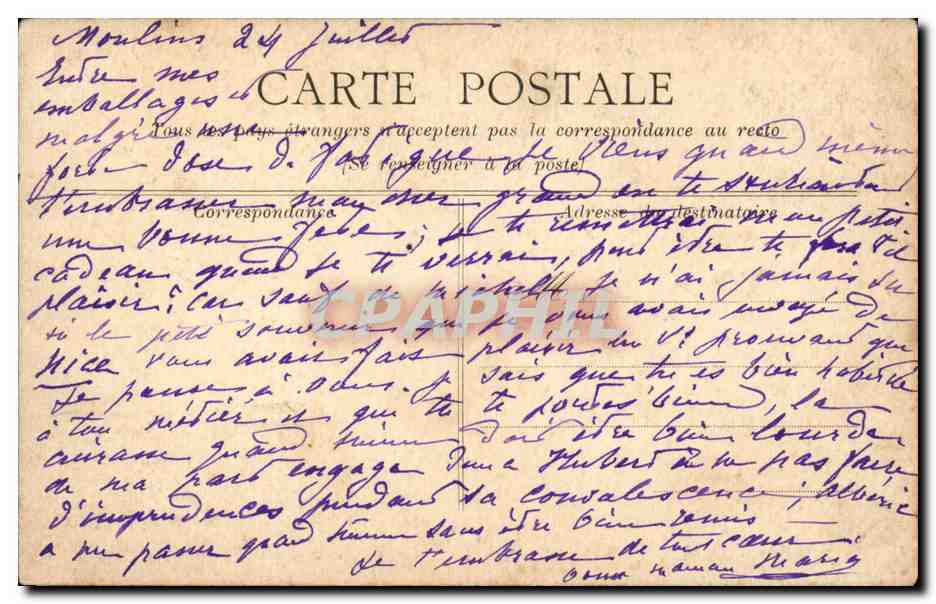 Moulins 24 juillet
Entre mes
emballages et
CARTE POSTALE
malgré une
Tous les pays étrangers n'acceptent pas la correspondance au recto
forte dose de je viens quand même
(Se renseigner à la poste)
t'embrasser mon cher grand en te souhaitant
Correspondance
Adresse du destinataire
une bonne fête; je te remettrai un petit
cadeau quand je te verrai, peut être te fera t'il
plaisir? car sauf de Michelle je n'ai jamais su
CPAPHIL
si le petit souvenir que je vous avais envoyé de
Nice vous avait fait plaisir en vs prouvant que
je pensais à vous. Je sais que tu es bien habitué
à ton métier et que tu te portes bien, la
cuirasse quand même doit être bien lourde
de ma part engage donc Hubert à ne pas faire
d'imprudences pendant sa convalescence, Albéric
a pu passer quand même sans être bien remis
Je t'embrasse de tout cœur
bonne maman Maria